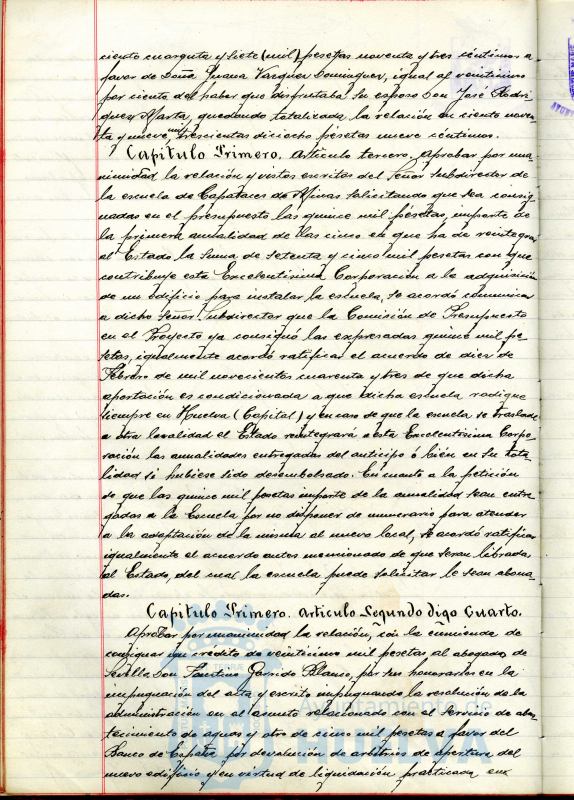 ciento cuarenta y siete (mil) pesetas noventa y tres céntimos a
favor de Doña Juana Vazquez Dominguez, igual al veinticinco
por ciento del haber que disfrutaba su esposo Don José Rodri-
guez Marta, quedando totalizada la relación en ciento noven-
ta y nueve mil trescientas dieciocho pesetas nueve céntimos.
Capítulo Primero. Artículo tercero. Aprobar por una-
nimidad la relación y vistos escritos del Señor Subdirector de
la escuela de Capataces de Minas solicitando que sea consig-
nadas en el presupuesto las quince mil pesetas, importe de
la primera anualidad de las cinco en que ha de reintegrar
al Estado la suma de setenta y cinco mil pesetas con que
contribuye esta Excelentísima Corporación a la adquisición
de un edificio para instalar la escuela, se acordó comunicar
a dicho Señor Subdirector que la Comisión de Presupuesto
en el Proyecto ya consignó las expresadas quince mil pe-
setas, igualmente acordó ratificar el acuerdo de diez de
Febrero de mil novecientos cuarenta y tres de que dicha
aportación es condicionada a que dicha escuela radique
siempre en Huelva (Capital) y en caso de que la escuela se traslade
a otra localidad el Estado reintegrará a esta Excelentísima Corpo-
ración las anualidades entregadas del anticipo ó bién en su tota-
lidad si hubiese sido desembolsado. En cuanto a la petición
de que las quince mil pesetas importe de la anualidad sean entre-
gadas a la Escuela por no disponer de numerario para atender
a la adaptación de la misma al nuevo local, se acordó ratificar
igualmente el acuerdo antes mencionado de que seran libradas
al Estado, del cual la escuela puede solicitar le sean abona-
das.
Capítulo Primero. Artículo Segundo digo Cuarto.
Aprobar por unanimidad la relación, con la enmienda de
consignar un crédito de veinticinco mil pesetas al abogado de
Sevilla Don Faustino Garrido Blanco, por sus honorarios en la
impugnación del acta y escrito impugnando la resolución de la
administración en el asunto relacionado con el servicio de abas-
tecimiento de aguas y otro de cinco mil pesetas a favor del
Banco de España por devolución de arbitrios de apertura del
nuevo edificio y en virtud de liquidación practicada en
Ayuntamiento de
HUELVA